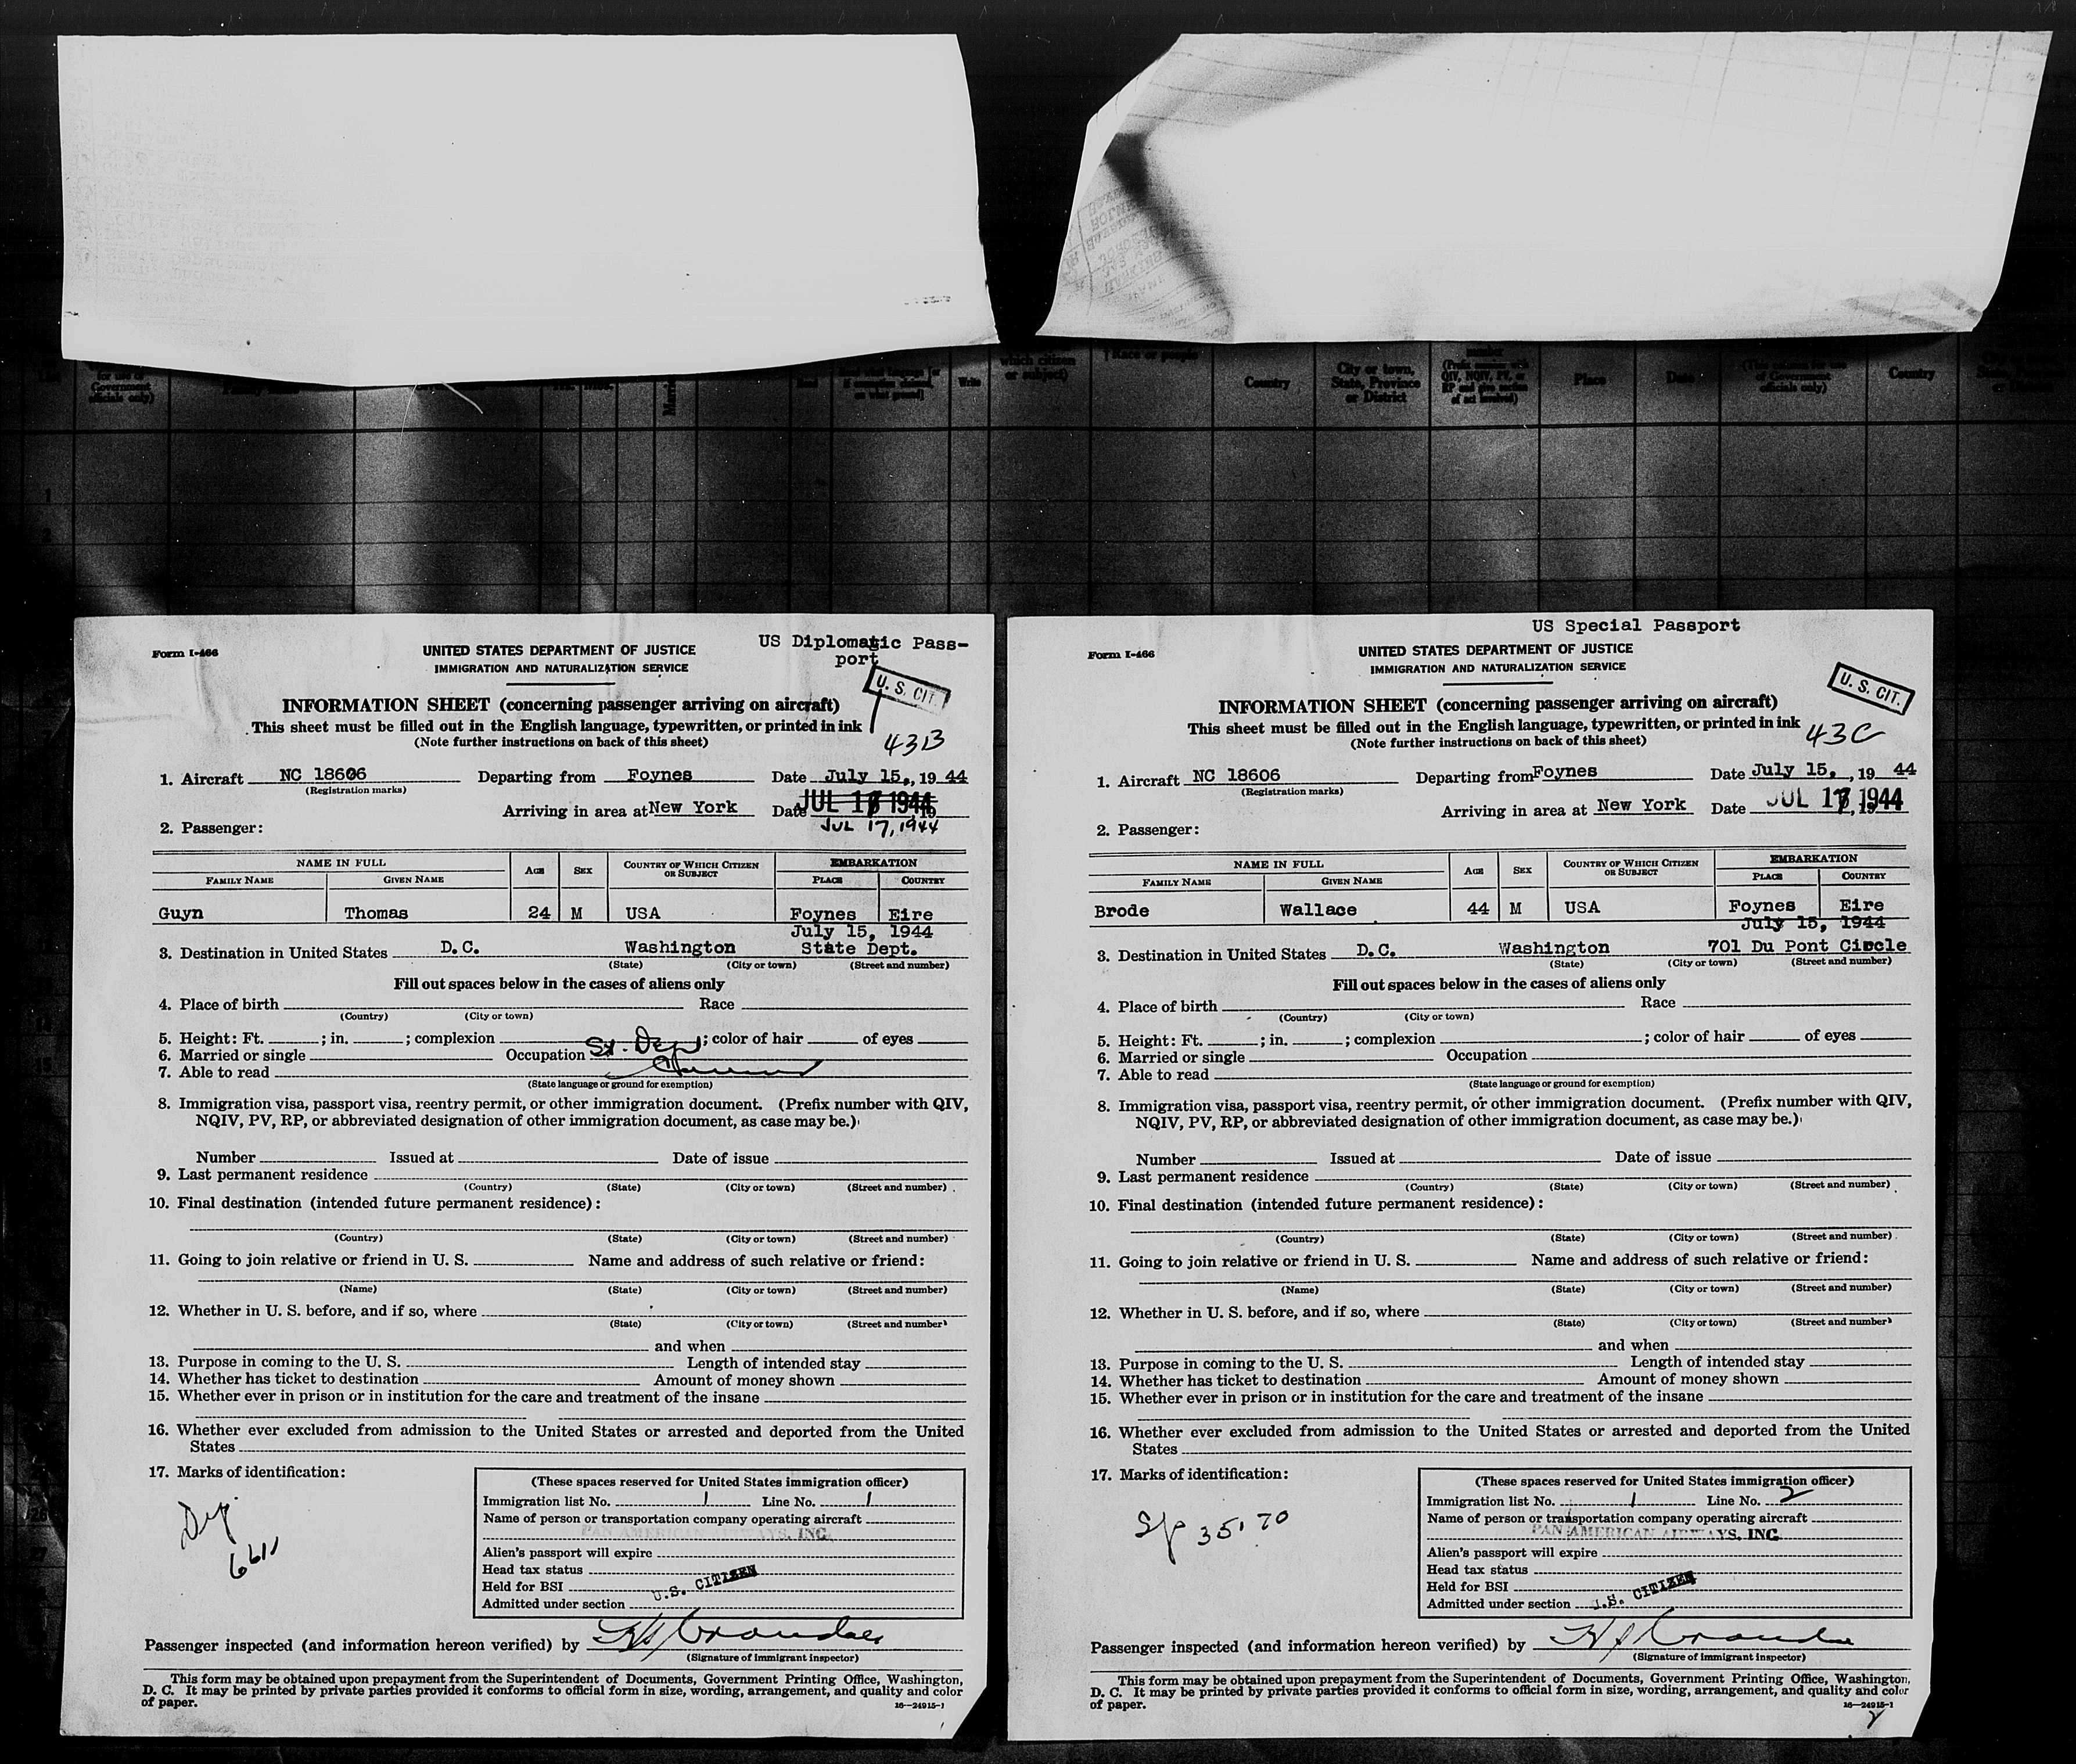 which citizen
or subject)
Race or people
Country
City or town,
State, Province
or District
(Prefix number with
QIV, NQIV, PV, or
RP and give section
of act involved)
Place
Date
of Government
officials only)
Country
for use of
Government
officials only)
Write
1
2
US Diplomatic Pass-
port
Form I-466
UNITED STATES DEPARTMENT OF JUSTICE
IMMIGRATION AND NATURALIZATION SERVICE
U. S. CIT.
INFORMATION SHEET (concerning passenger arriving on aircraft)
This sheet must be filled out in the English language, typewritten, or printed in ink
(Note further instructions on back of this sheet)
43B
1. Aircraft NC 18606 Departing from Foynes Date July 15, 19 44
(Registration marks)
Arriving in area at New York Date JUL 17 1944, 19
JUL 17, 1944
2. Passenger:
NAME IN FULL AGE SEX COUNTRY OF WHICH CITIZEN OR SUBJECT EMBARKATION
FAMILY NAME GIVEN NAME PLACE COUNTRY
Guyn Thomas 24 M USA Foynes Eire
July 15, 1944
3. Destination in United States D.C. Washington State Dept.
(State) (City or town) (Street and number)
Fill out spaces below in the cases of aliens only
4. Place of birth Race
(Country) (City or town)
5. Height: Ft. ; in. ; complexion ; color of hair of eyes
6. Married or single Occupation St. Dep
7. Able to read
(State language or ground for exemption)
8. Immigration visa, passport visa, reentry permit, or other immigration document. (Prefix number with QIV,
NQIV, PV, RP, or abbreviated designation of other immigration document, as case may be.)
Number Issued at Date of issue
9. Last permanent residence
(Country) (State) (City or town) (Street and number)
10. Final destination (intended future permanent residence):
(Country) (State) (City or town) (Street and number)
11. Going to join relative or friend in U. S. Name and address of such relative or friend:
(Name) (State) (City or town) (Street and number)
12. Whether in U. S. before, and if so, where
(State) (City or town) (Street and number)
and when
13. Purpose in coming to the U. S. Length of intended stay
14. Whether has ticket to destination Amount of money shown
15. Whether ever in prison or in institution for the care and treatment of the insane
16. Whether ever excluded from admission to the United States or arrested and deported from the United
States
17. Marks of identification:
Dip
(These spaces reserved for United States immigration officer)
Immigration list No. 1 Line No. 1
Name of person or transportation company operating aircraft
PAN AMERICAN AIRWAYS, INC.
Alien's passport will expire
Head tax status
Held for BSI
Admitted under section U.S. CITIZEN
Passenger inspected (and information hereon verified) by
(Signature of immigrant inspector)
This form may be obtained upon prepayment from the Superintendent of Documents, Government Printing Office, Washington,
D. C. It may be printed by private parties provided it conforms to official form in size, wording, arrangement, and quality and color
of paper.
16—24915-1
US Special Passport
Form I-466
UNITED STATES DEPARTMENT OF JUSTICE
IMMIGRATION AND NATURALIZATION SERVICE
U. S. CIT.
INFORMATION SHEET (concerning passenger arriving on aircraft)
This sheet must be filled out in the English language, typewritten, or printed in ink
(Note further instructions on back of this sheet)
43C
1. Aircraft NC 18606 Departing from Foynes Date July 15, , 19 44
(Registration marks)
Arriving in area at New York Date JUL 17 1944, 19
2. Passenger:
NAME IN FULL AGE SEX COUNTRY OF WHICH CITIZEN OR SUBJECT EMBARKATION
FAMILY NAME GIVEN NAME PLACE COUNTRY
Brode Wallace 44 M USA Foynes Eire
July 15, 1944
3. Destination in United States D.C. Washington 701 Du Pont Circle
(State) (City or town) (Street and number)
Fill out spaces below in the cases of aliens only
4. Place of birth Race
(Country) (City or town)
5. Height: Ft. ; in. ; complexion ; color of hair of eyes
6. Married or single Occupation
7. Able to read
(State language or ground for exemption)
8. Immigration visa, passport visa, reentry permit, or other immigration document. (Prefix number with QIV,
NQIV, PV, RP, or abbreviated designation of other immigration document, as case may be.)
Number Issued at Date of issue
9. Last permanent residence
(Country) (State) (City or town) (Street and number)
10. Final destination (intended future permanent residence):
(Country) (State) (City or town) (Street and number)
11. Going to join relative or friend in U. S. Name and address of such relative or friend:
(Name) (State) (City or town) (Street and number)
12. Whether in U. S. before, and if so, where
(State) (City or town) (Street and number)
and when
13. Purpose in coming to the U. S. Length of intended stay
14. Whether has ticket to destination Amount of money shown
15. Whether ever in prison or in institution for the care and treatment of the insane
16. Whether ever excluded from admission to the United States or arrested and deported from the United
States
17. Marks of identification:
Sp 35170
(These spaces reserved for United States immigration officer)
Immigration list No. 1 Line No. 2
Name of person or transportation company operating aircraft
PAN AMERICAN AIRWAYS, INC.
Alien's passport will expire
Head tax status
Held for BSI
Admitted under section U.S. CITIZEN
Passenger inspected (and information hereon verified) by
(Signature of immigrant inspector)
This form may be obtained upon prepayment from the Superintendent of Documents, Government Printing Office, Washington,
D. C. It may be printed by private parties provided it conforms to official form in size, wording, arrangement, and quality and color
of paper.
16—24915-1